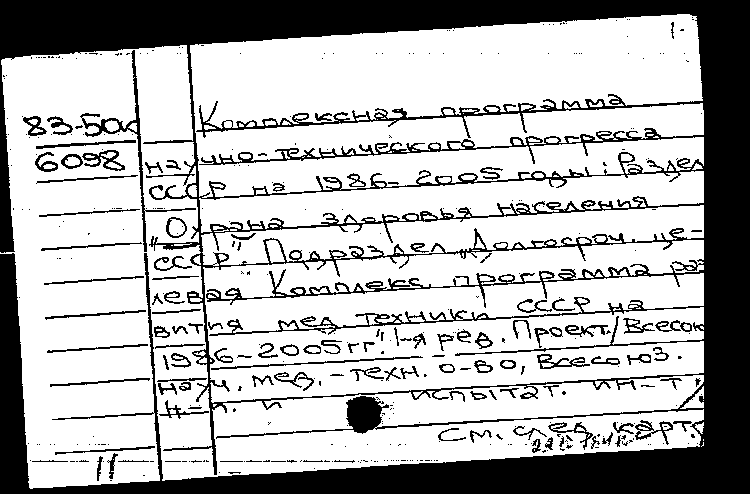 1.
83-50к Комплексная программа
6098 научно-технического прогресса
СССР на 1986-2005 годы: Раздел
"Охрана здоровья населения
СССР". Подраздел "Долгосроч. це-
левая Комплекс. программа раз
вития мед. техники СССР на
1986-2005 гг." 1-я ред. Проект./Всесоюз
науч. мед.-техн. о-во, Всесоюз.
н.-и. и испытат. ин-т
см. след. карт.
11